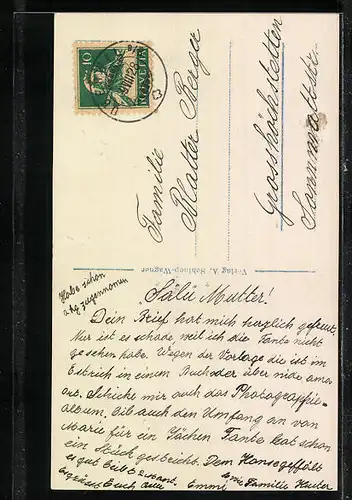 10
HELVETIA
VIII 28
Familie
Blatter Berger
Grosshöchstetten
Sonnmattstr.
Verlag A. Schlup-Wagner
Habe schon
2 kg zugenommen
Salü Mutter!
Dein Brief hat mich herzlich gefreut.
Nur ist es schade, weil ich die Tante nicht
gesehen habe. Wegen der Vorlage die ist im
Estrich in einem Buch oder über
Schicke mir auch das Photographie-
album. Gib auch den Umfang an von
Marie für ein Jäckchen Tante hat schon
ein Stück gestrickt. Dem Hans gefällts
es gut
Euch Emmi Familie